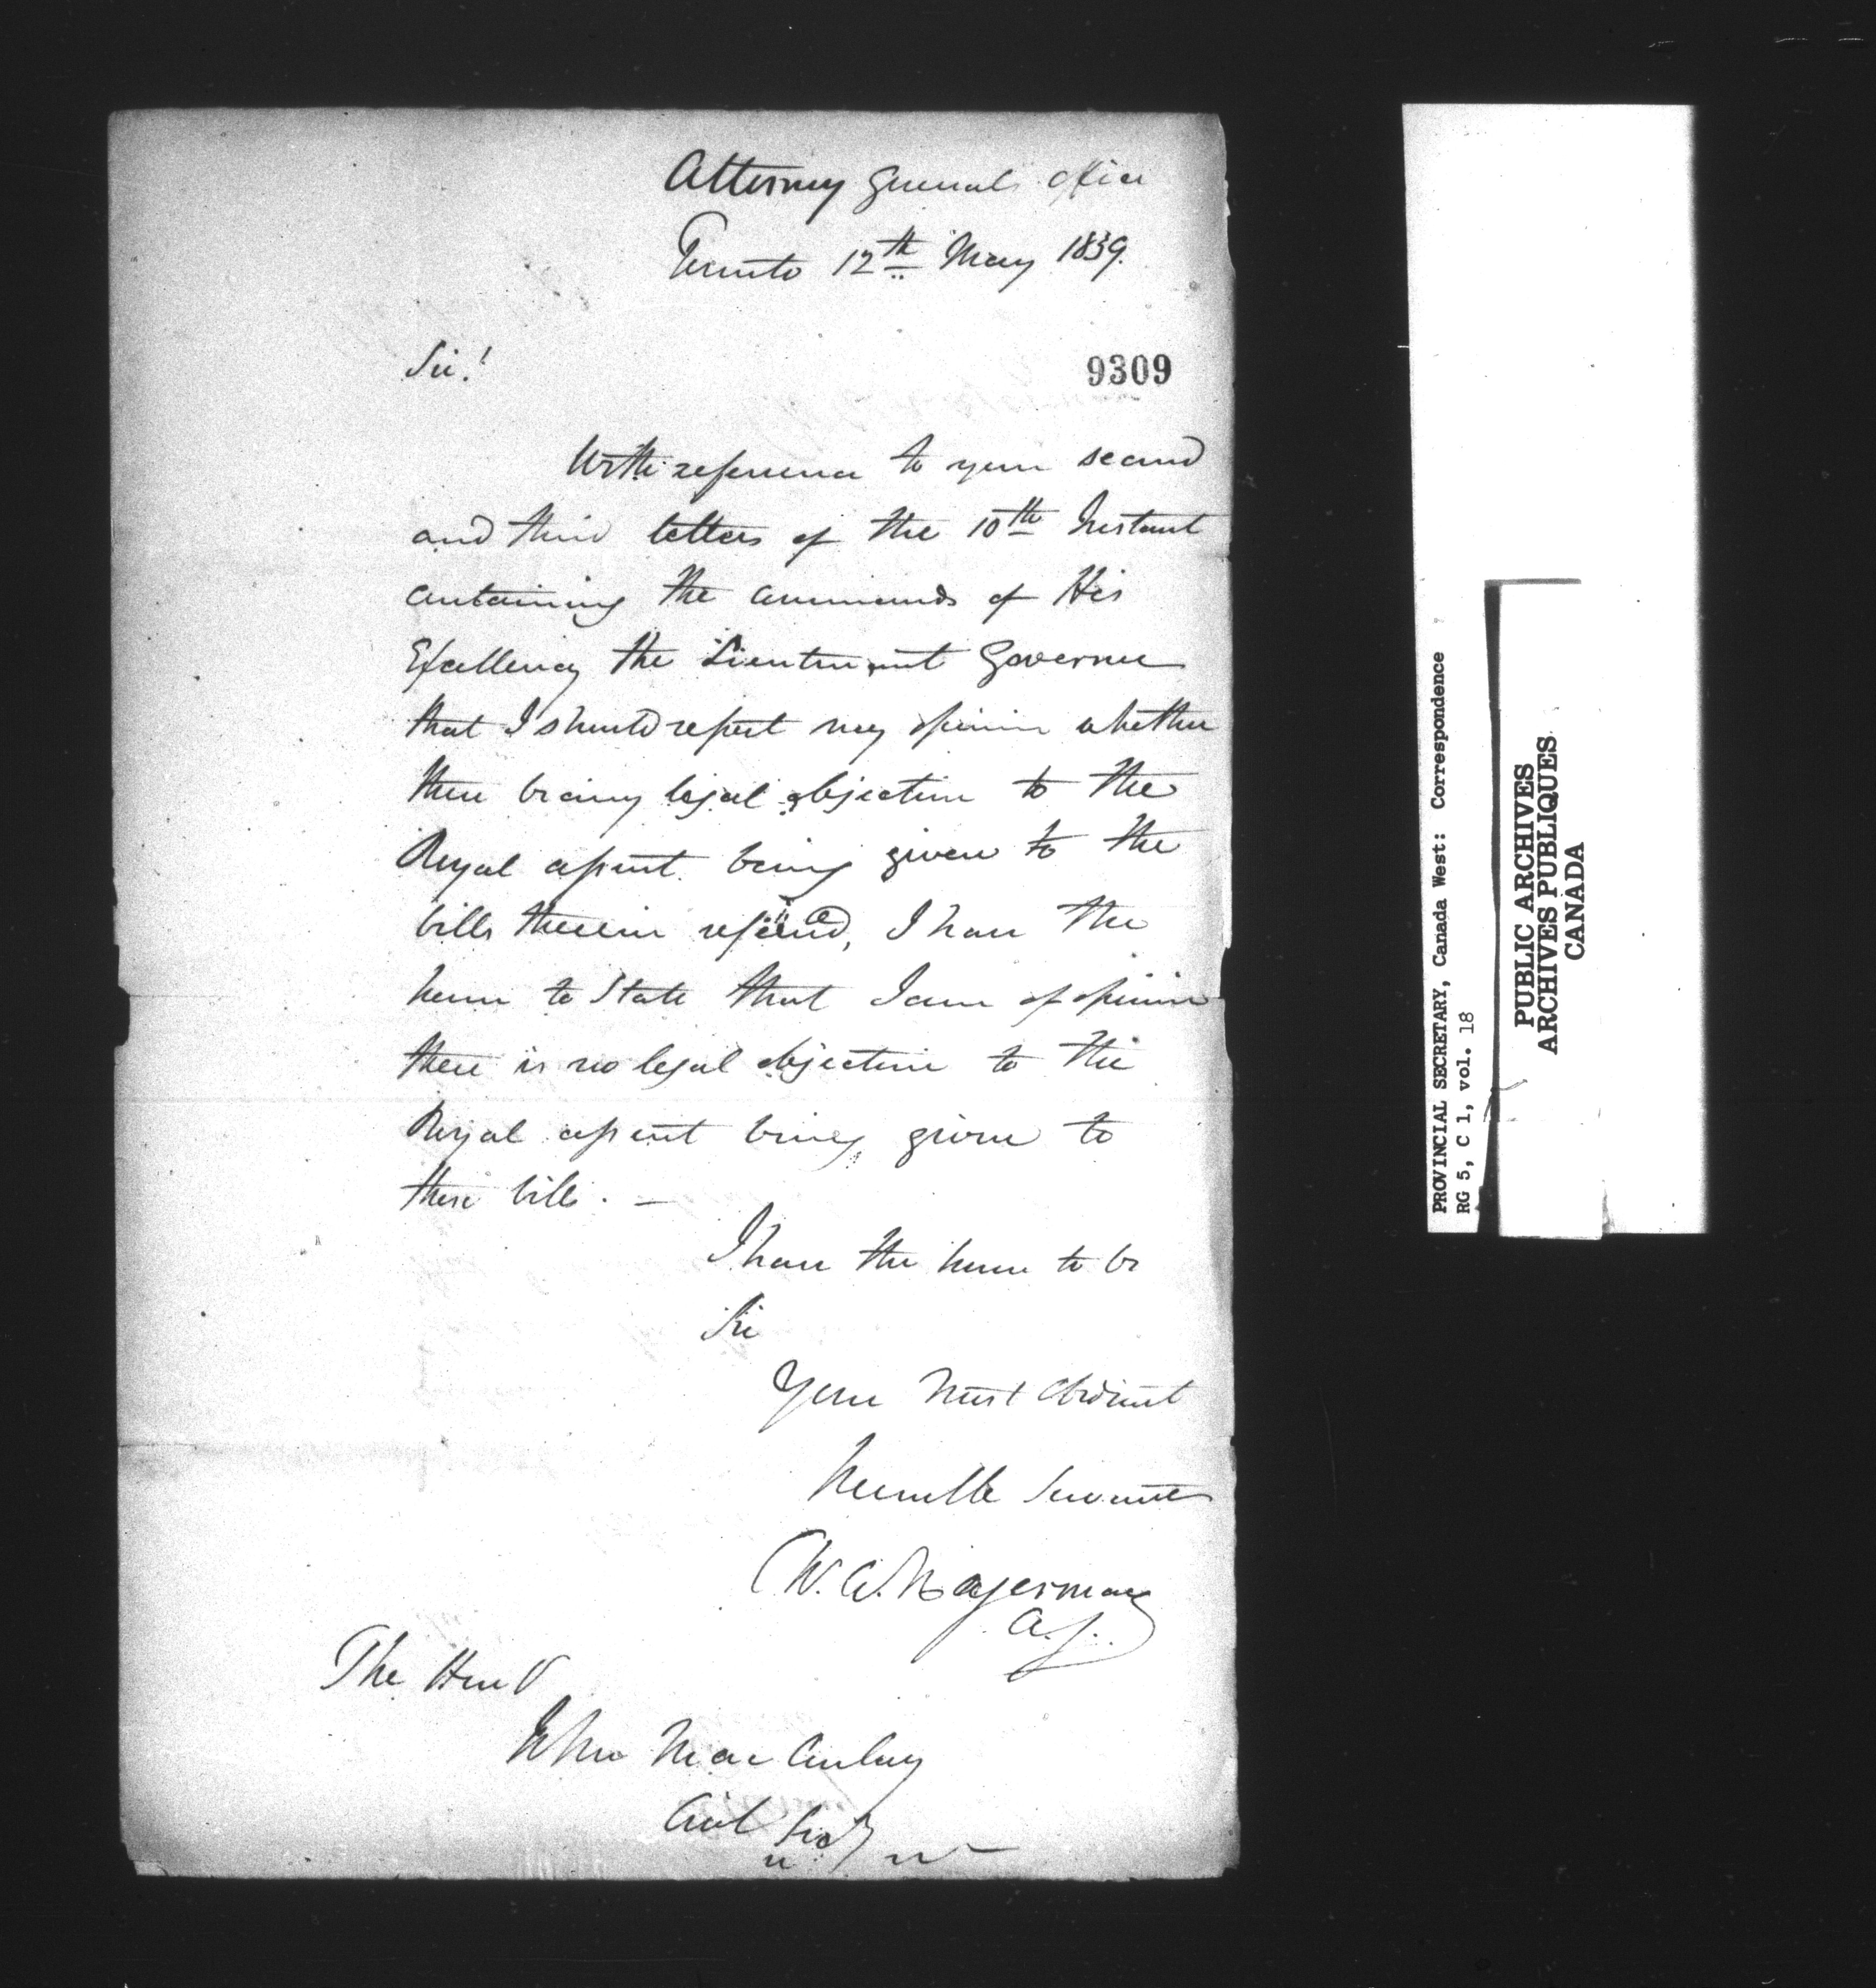 Attorney Generals office
Toronto 12th May 1839.
Sir!
9309
With reference to your second
and third letters of the 10th Instant
containing the commands of His
Excellency the Lieutenant Governor
that I should report my opinion whether
there be any legal objection to the
Royal assent being given to the
bills therein referred, I have the
honor to state that I am of opinion
there is no legal objection to the
Royal assent being given to
these bills. —
I have the honor to be
Sir
Your most obedient
humble servant
C. A. Hagerman
A. G.
The Honl
John Macaulay
Civil Secy
PROVINCIAL SECRETARY, Canada West: Correspondence
RG 5, C 1, vol. 18
PUBLIC ARCHIVES
ARCHIVES PUBLIQUES
CANADA